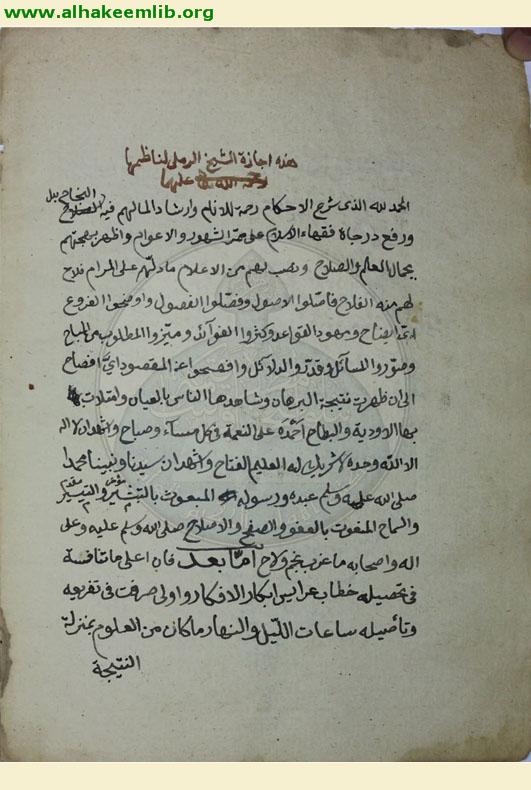 www.alhakeemlib.org
هذه اجازة الشيخ الرملي لناظمها
رحمة الله عليهما
الحمد لله الذي شرع الاحكام رحمة للانام وارشادا لما لهم فيه الصلاح النجاح بل
ورفع درجاة فقهاء الاسلام على ممر الشهور والاعوام واظهر بهجتهم
بجمال العلم والصلاح ونصب لهم من الاعلام ما دلهم على المرام فلاح
لهم منه الفلاح فاصّلوا الاصول وفصّلوا الفصول واوضحوا الفروع
ايّ ايضاح ومهدوا القواعد وكثروا الفوائد وميّزوا المطلوب من المباح
وصوّروا المسائل وقدّروا الدلائل وافصحوا عن المقصود ايّ افصاح
الى ان ظهرت نتيجة البرهان وشاهدها الناس بالعيان وامتلات
بها الاودية والبطاح احمده على النعمة في كل مساء وصباح واشهد ان لا اله
الا الله وحده لا شريك له العليم الفتاح واشهد ان سيدنا ونبينا محمدا
صلى الله عليه وسلم عبده ورسوله المبعوث بالتبشير مؤخر والتيسير مقدم
والسماح المنعوت بالعفو والصفح والاصلاح صلى الله وسلم عليه وعلى
اله واصحابه ما غرب نجم ولاح امّا بعد فان اعلى ما تنافسة
في تحصيله خطاب عرايس ابكار الافكار واولى ما صرفت في تفريعه
وتأصيله ساعات الليل والنهار ما كان من العلوم بمنزلة
النتيجة